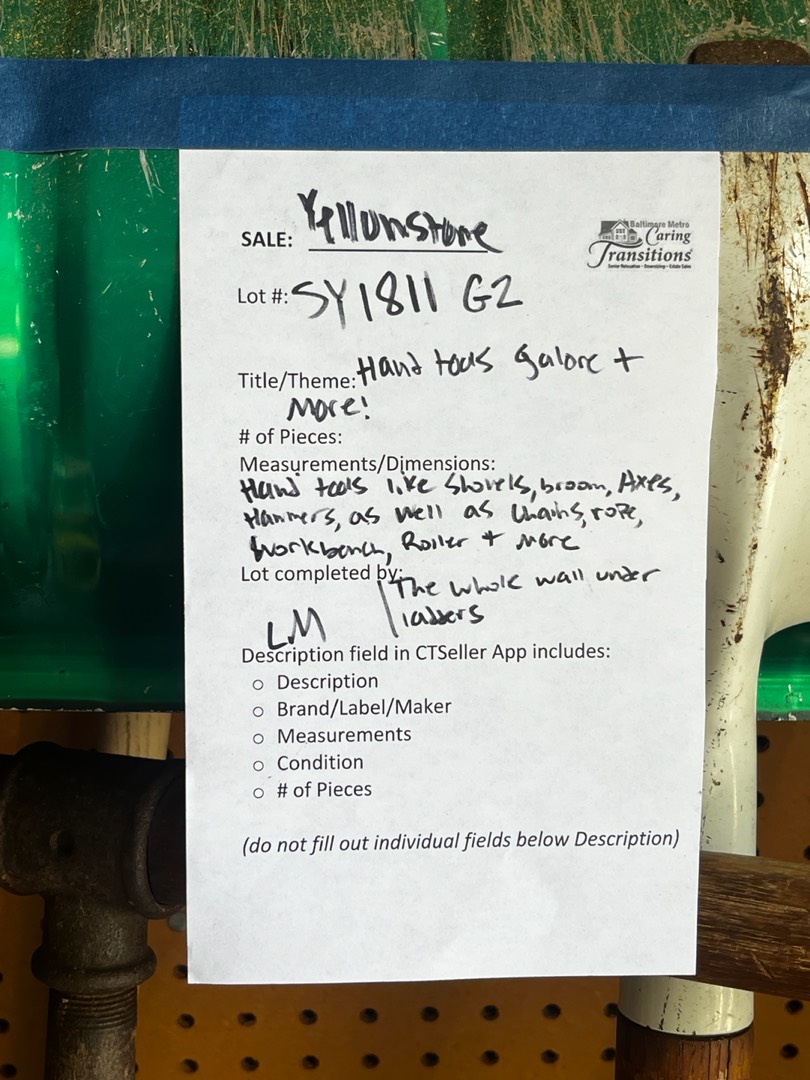 SALE: Yellowstone
Baltimore Metro
Caring
Transitions
Senior Relocation • Downsizing • Estate Sales
Lot #: SY1811 G2
Title/Theme: Hand tools galore +
More!
# of Pieces:
Measurements/Dimensions:
Hand tools like Shovels, broom, Axes,
Hammers, as well as Chains, rope,
Workbench, Roller + More
Lot completed by:
The whole wall under
ladders
LM
Description field in CTSeller App includes:
o Description
o Brand/Label/Maker
o Measurements
o Condition
o # of Pieces
(do not fill out individual fields below Description)